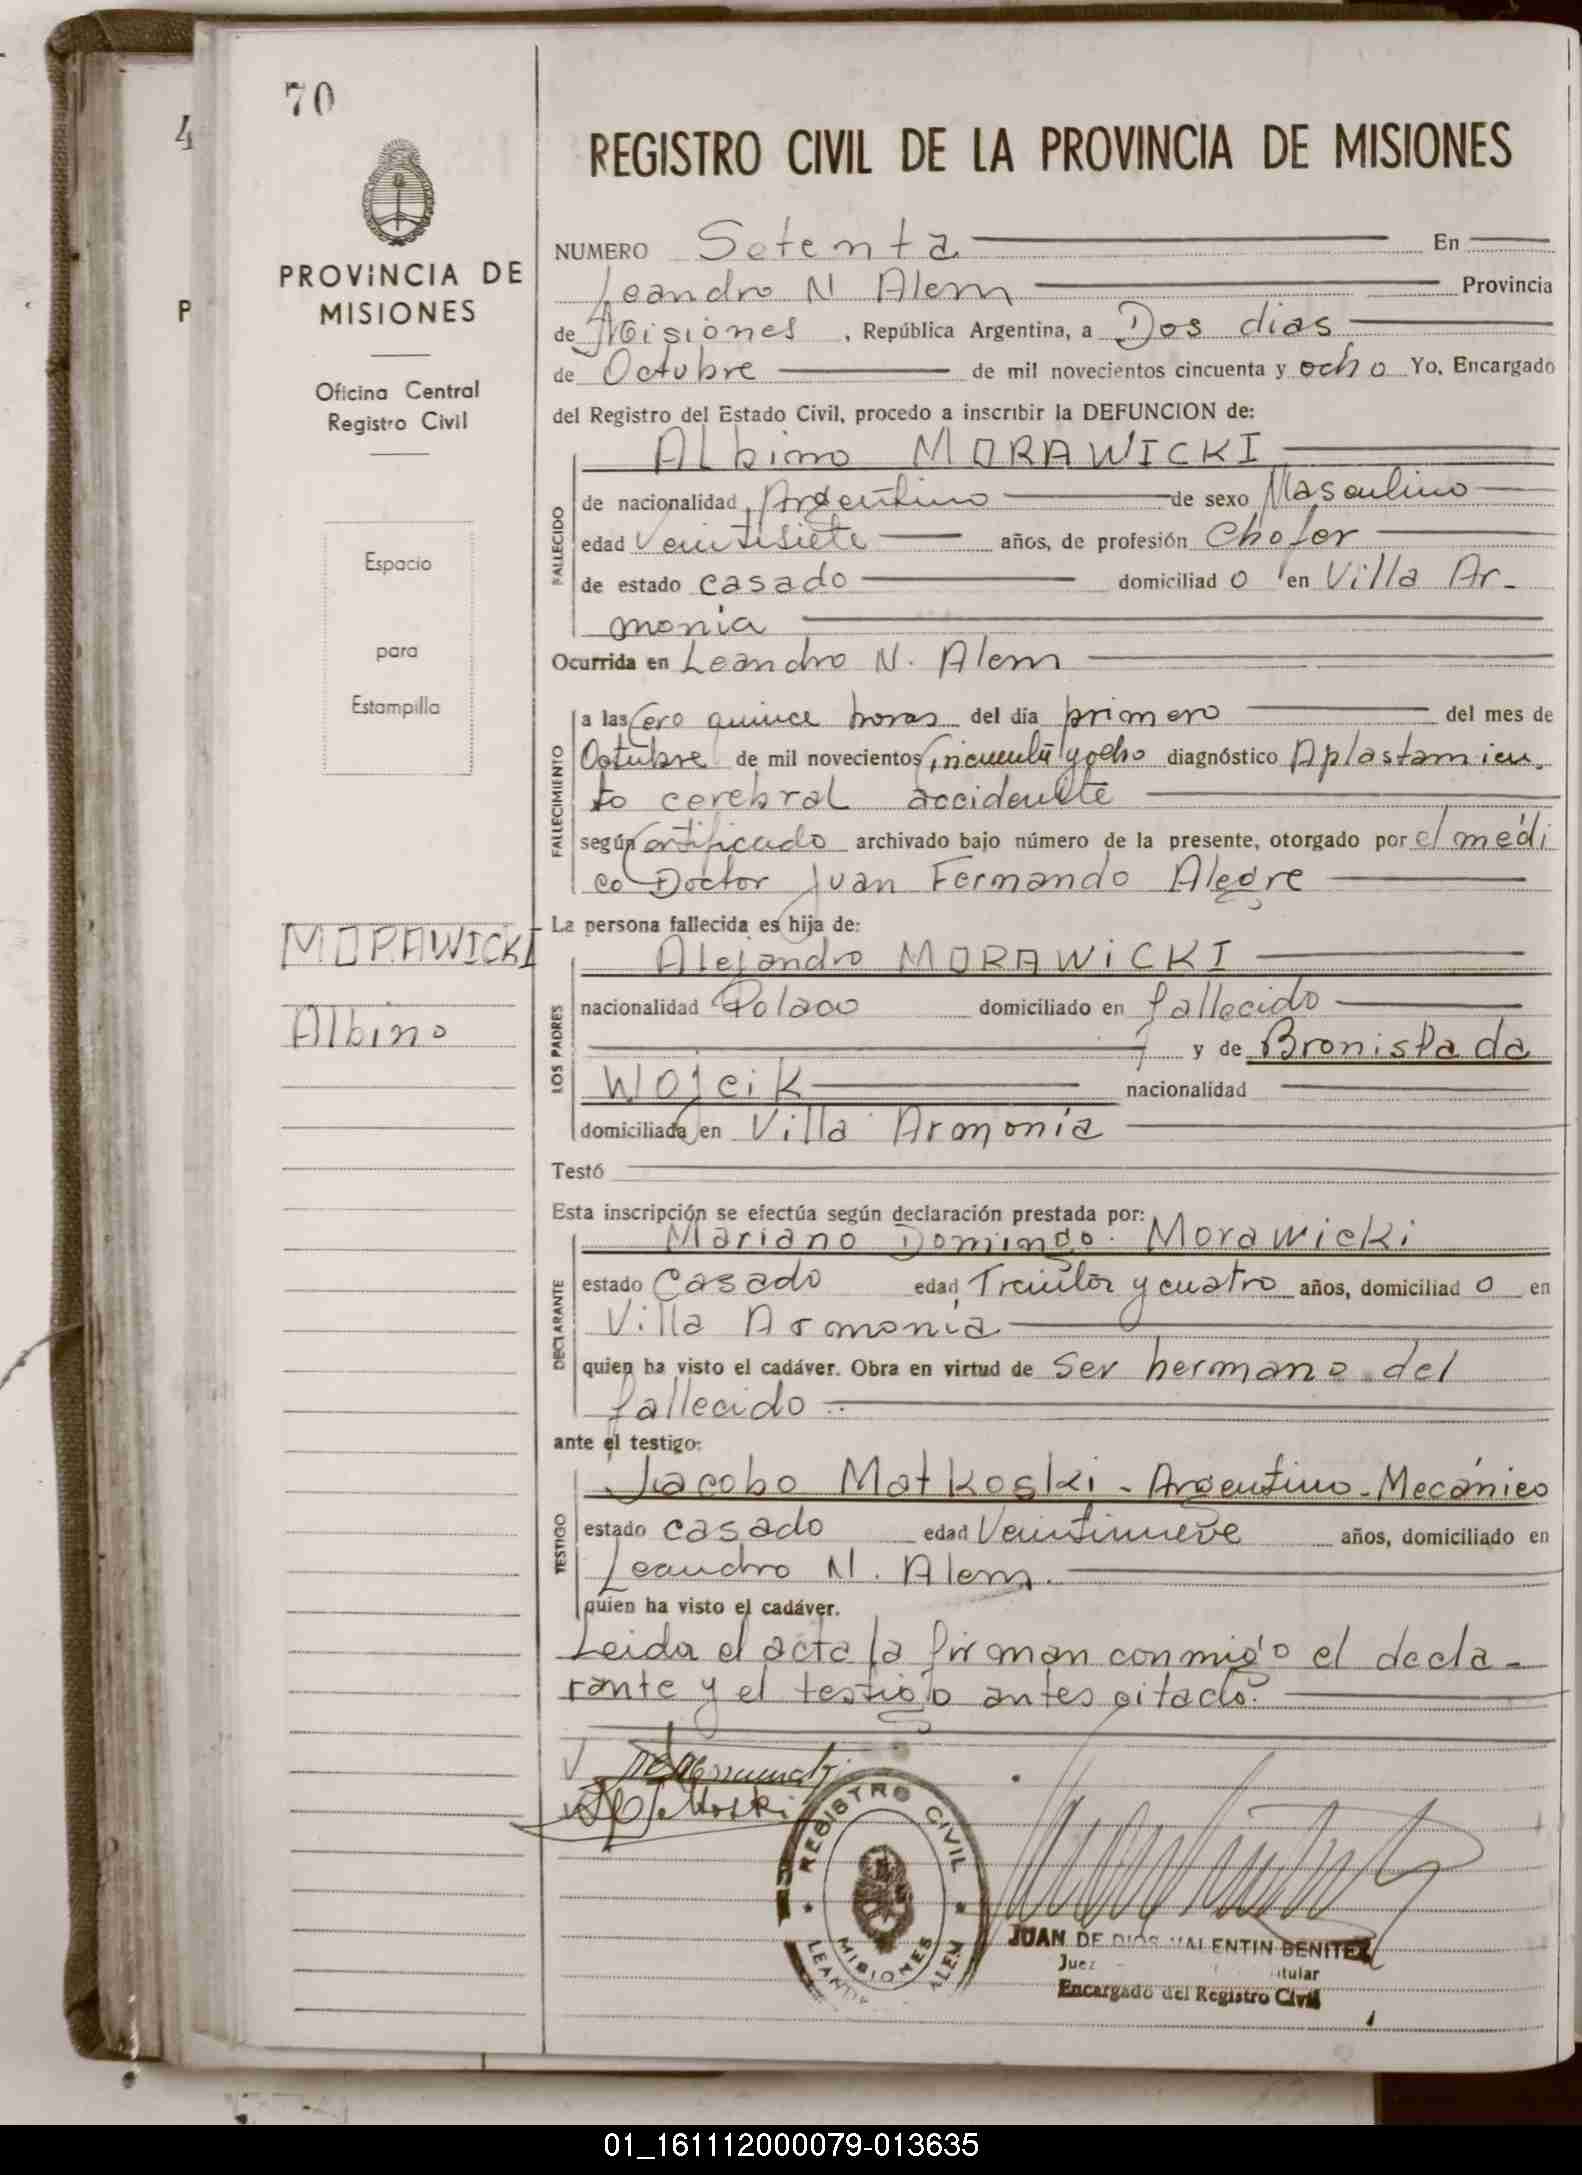 70
4
P
PROVINCIA DE
MISIONES
Oficina Central
Registro Civil
Espacio
para
Estampilla
MORAWICKI
Albino
REGISTRO CIVIL DE LA PROVINCIA DE MISIONES
NUMERO Setenta En
Leandro N Alem Provincia
de Misiones, República Argentina, a Dos dias
de Octubre de mil novecientos cincuenta y ocho Yo, Encargado
del Registro del Estado Civil, procedo a inscribir la DEFUNCION de:
Albino MORAWICKI
FALLECIDO
de nacionalidad Argentino de sexo Masculino
edad Veintisiete años, de profesión Chofer
de estado casado domiciliad o en Villa Ar-
monia
Ocurrida en Leandro N. Alem
FALLECIMIENTO
a las Cero quince horas del día primero del mes de
Octubre de mil novecientos Cincuenta y ocho diagnóstico Aplastamien-
to cerebral accidente
según Certificado archivado bajo número de la presente, otorgado por el médi
co Doctor Juan Fernando Alegre
La persona fallecida es hija de:
LOS PADRES
Alejandro MORAWiCKI
nacionalidad Polaco domiciliado en fallecido
y de Bronislada
Wojcik nacionalidad
domiciliada en Villa Armonía
Testó
Esta inscripción se efectúa según declaración prestada por:
DECLARANTE
Mariano Domingo Morawicki
estado Casado edad Treinta y cuatro años, domiciliad o en
Villa Armonía
quien ha visto el cadáver. Obra en virtud de Ser hermano del
fallecido
ante el testigo:
TESTIGO
Jacobo Matkoski - Argentino - Mecánico
estado casado edad Veintinueve años, domiciliado en
Leandro N. Alem.
quien ha visto el cadáver.
Leida el acta la firman conmigo el decla-
rante y el testigo antes citado.
REGISTRO CIVIL
MISIONES
ALEM
JUAN DE DIOS VALENTIN BENITEZ
Juez
Encargado del Registro Civil
01_161112000079-013635